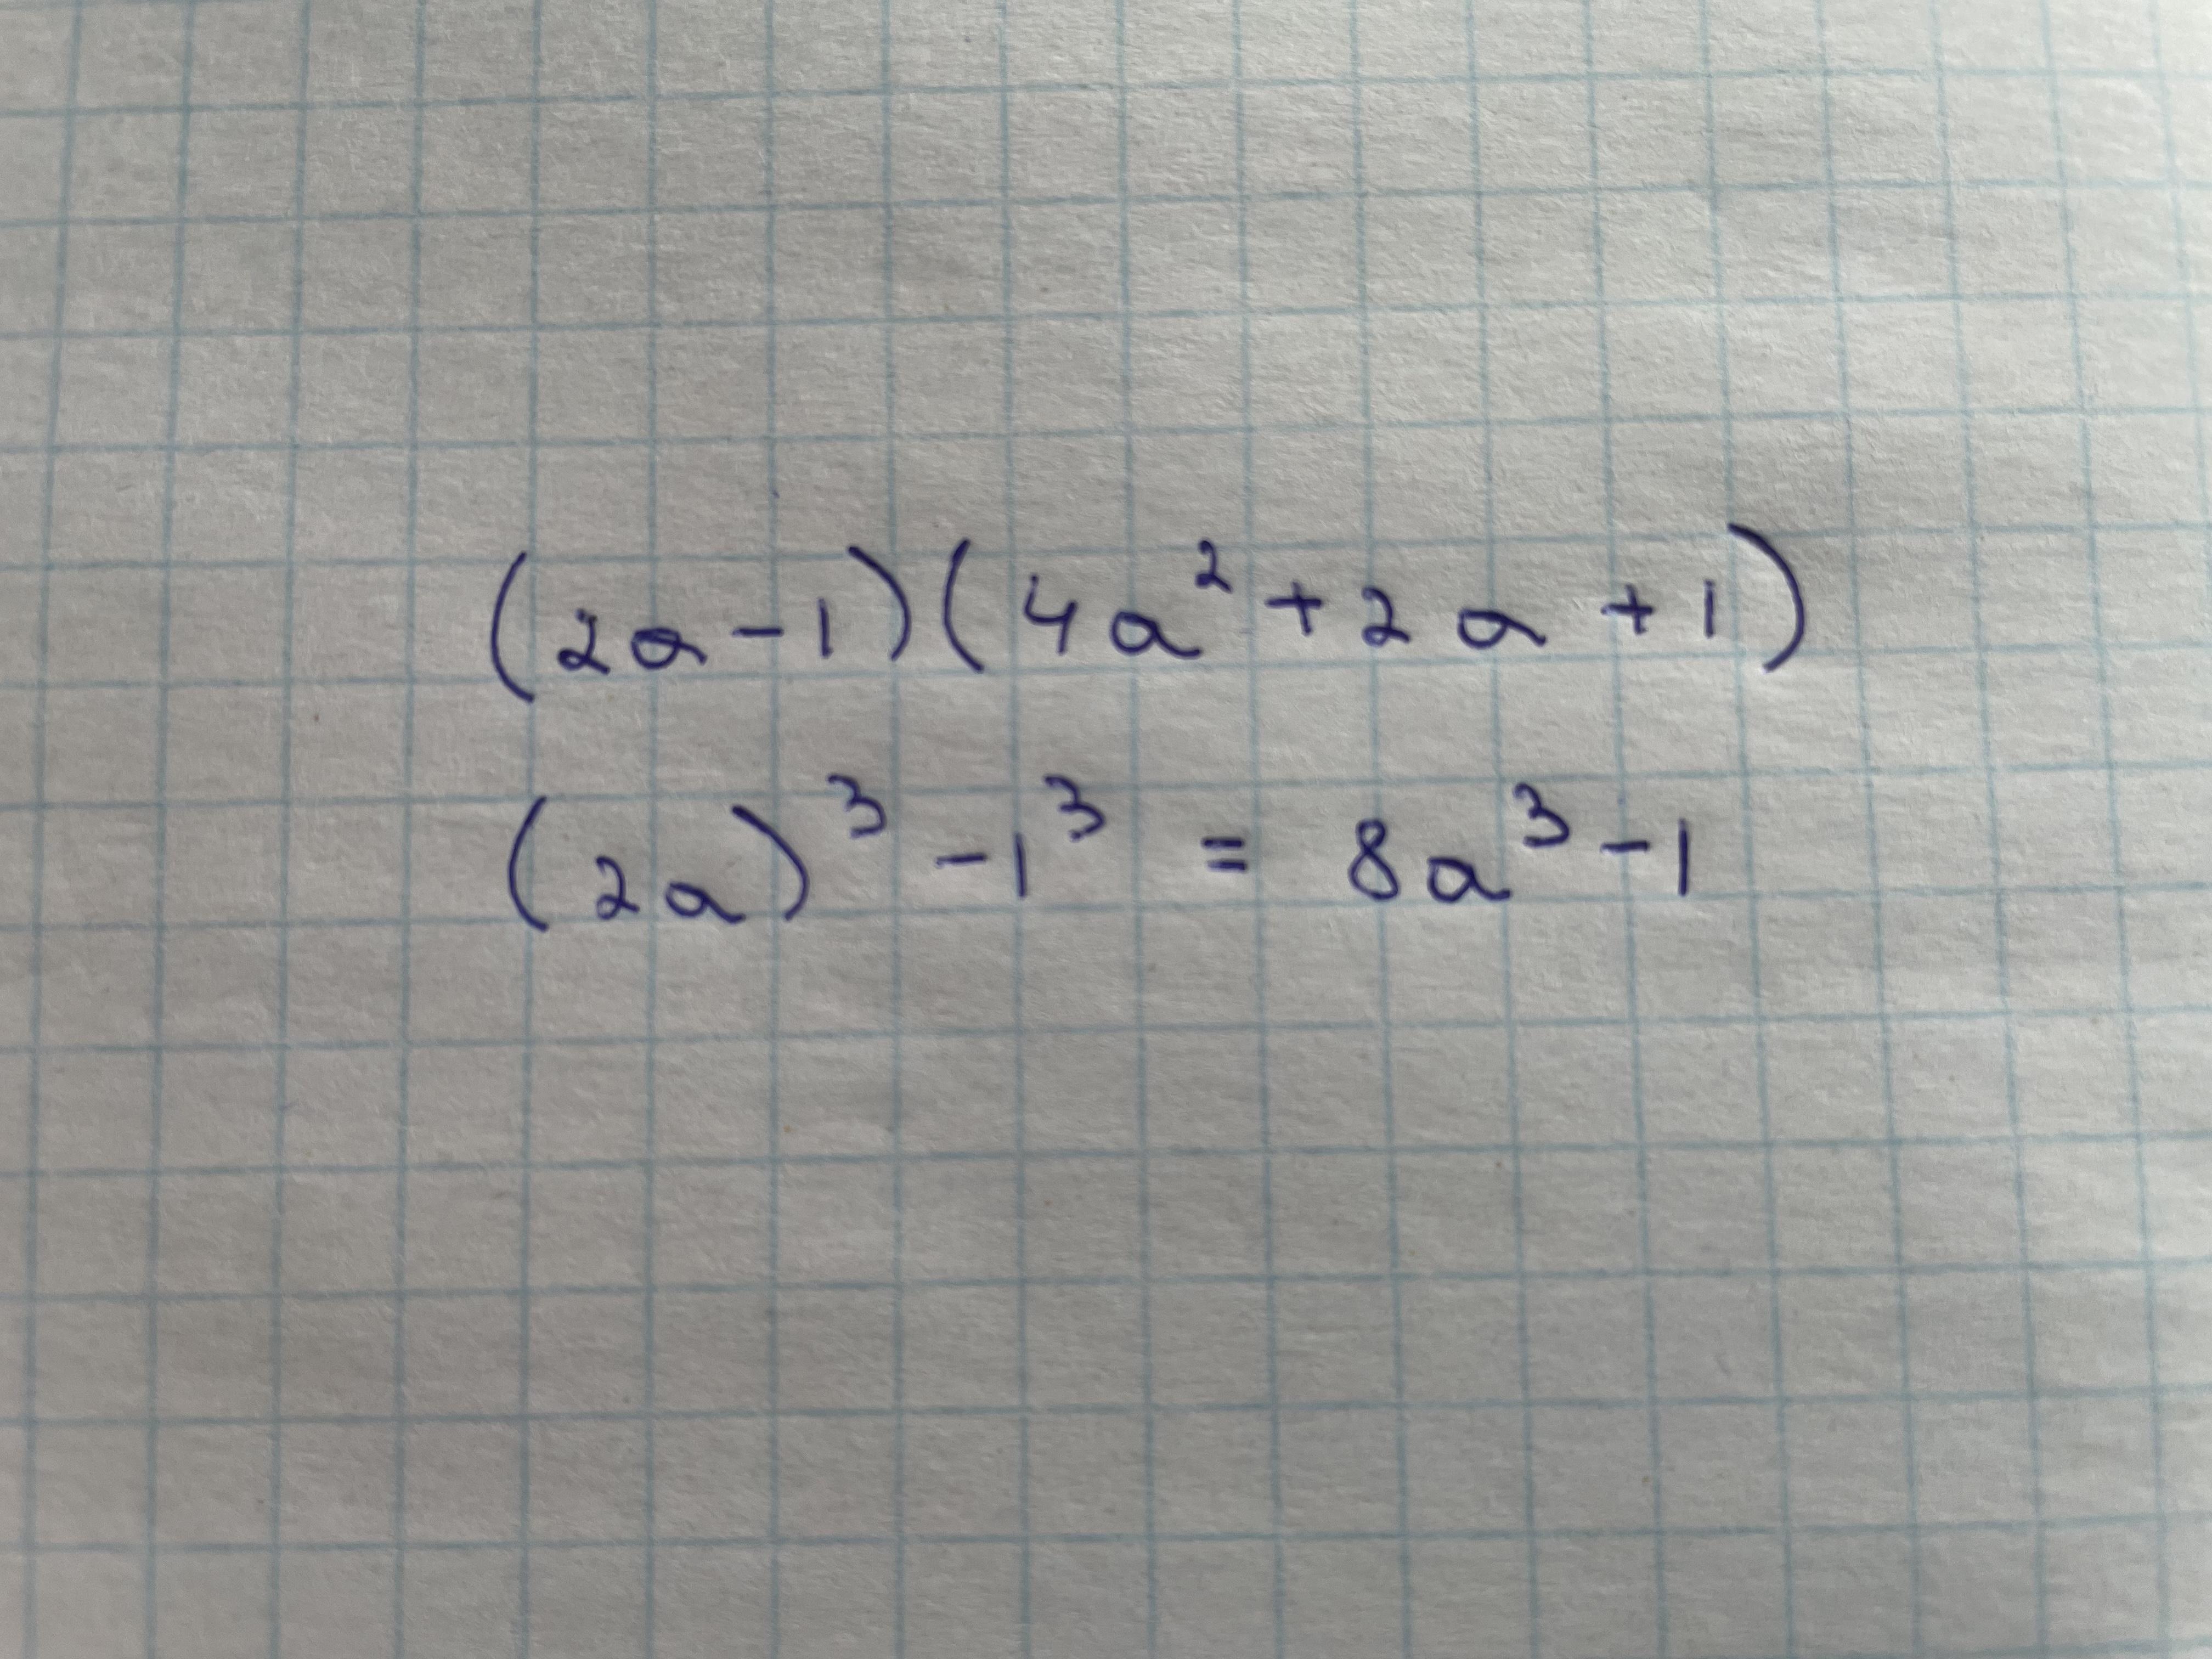 (2a-1)(4a²+2a+1)
(2a)³-1³ = 8a³-1